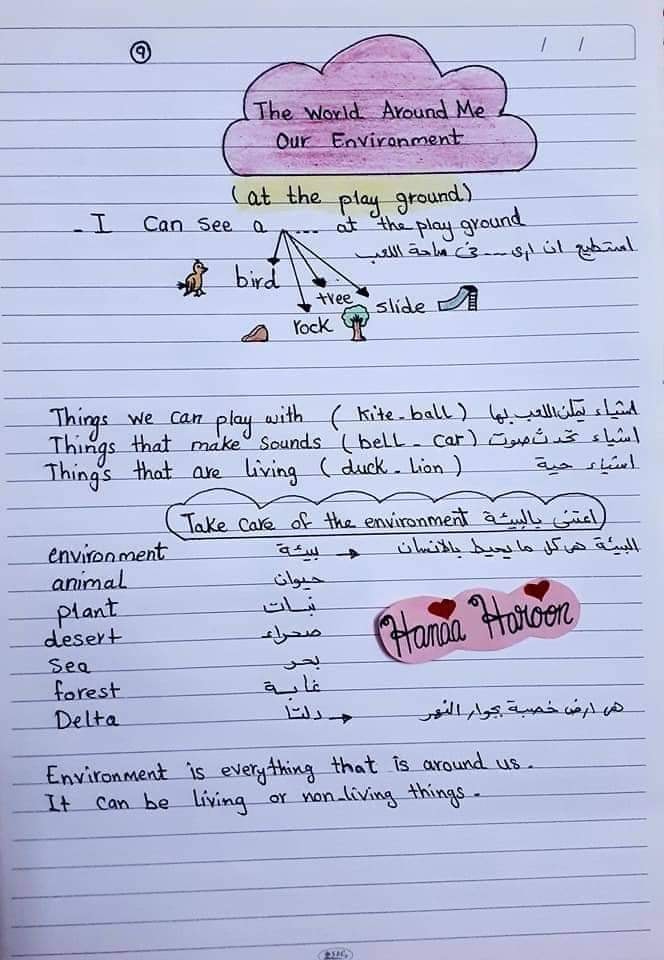 9
/ /
The World Around Me
Our Environment
(at the play ground)
- I Can See a .... at the play ground
استطيع ان ارى .... فى ساحة اللعب
bird
tree
slide
rock
Things we can play with ( kite - ball ) اشياء يمكن اللعب بها
Things that make sounds ( bell - car ) اشياء تحدث صوت
Things that are living ( duck - lion ) اشياء حية
Take care of the environment اعتنى بالبيئة
environment بيئة → البيئة هى كل ما يحيط بالانسان
animal حيوان
plant نبات
desert صحراء
Sea بحر
forest غابة
Delta دلتا → هى ارض خصبة بجوار النهر
Hanaa Haroon
Environment is everything that is around us.
It can be living or non-living things.